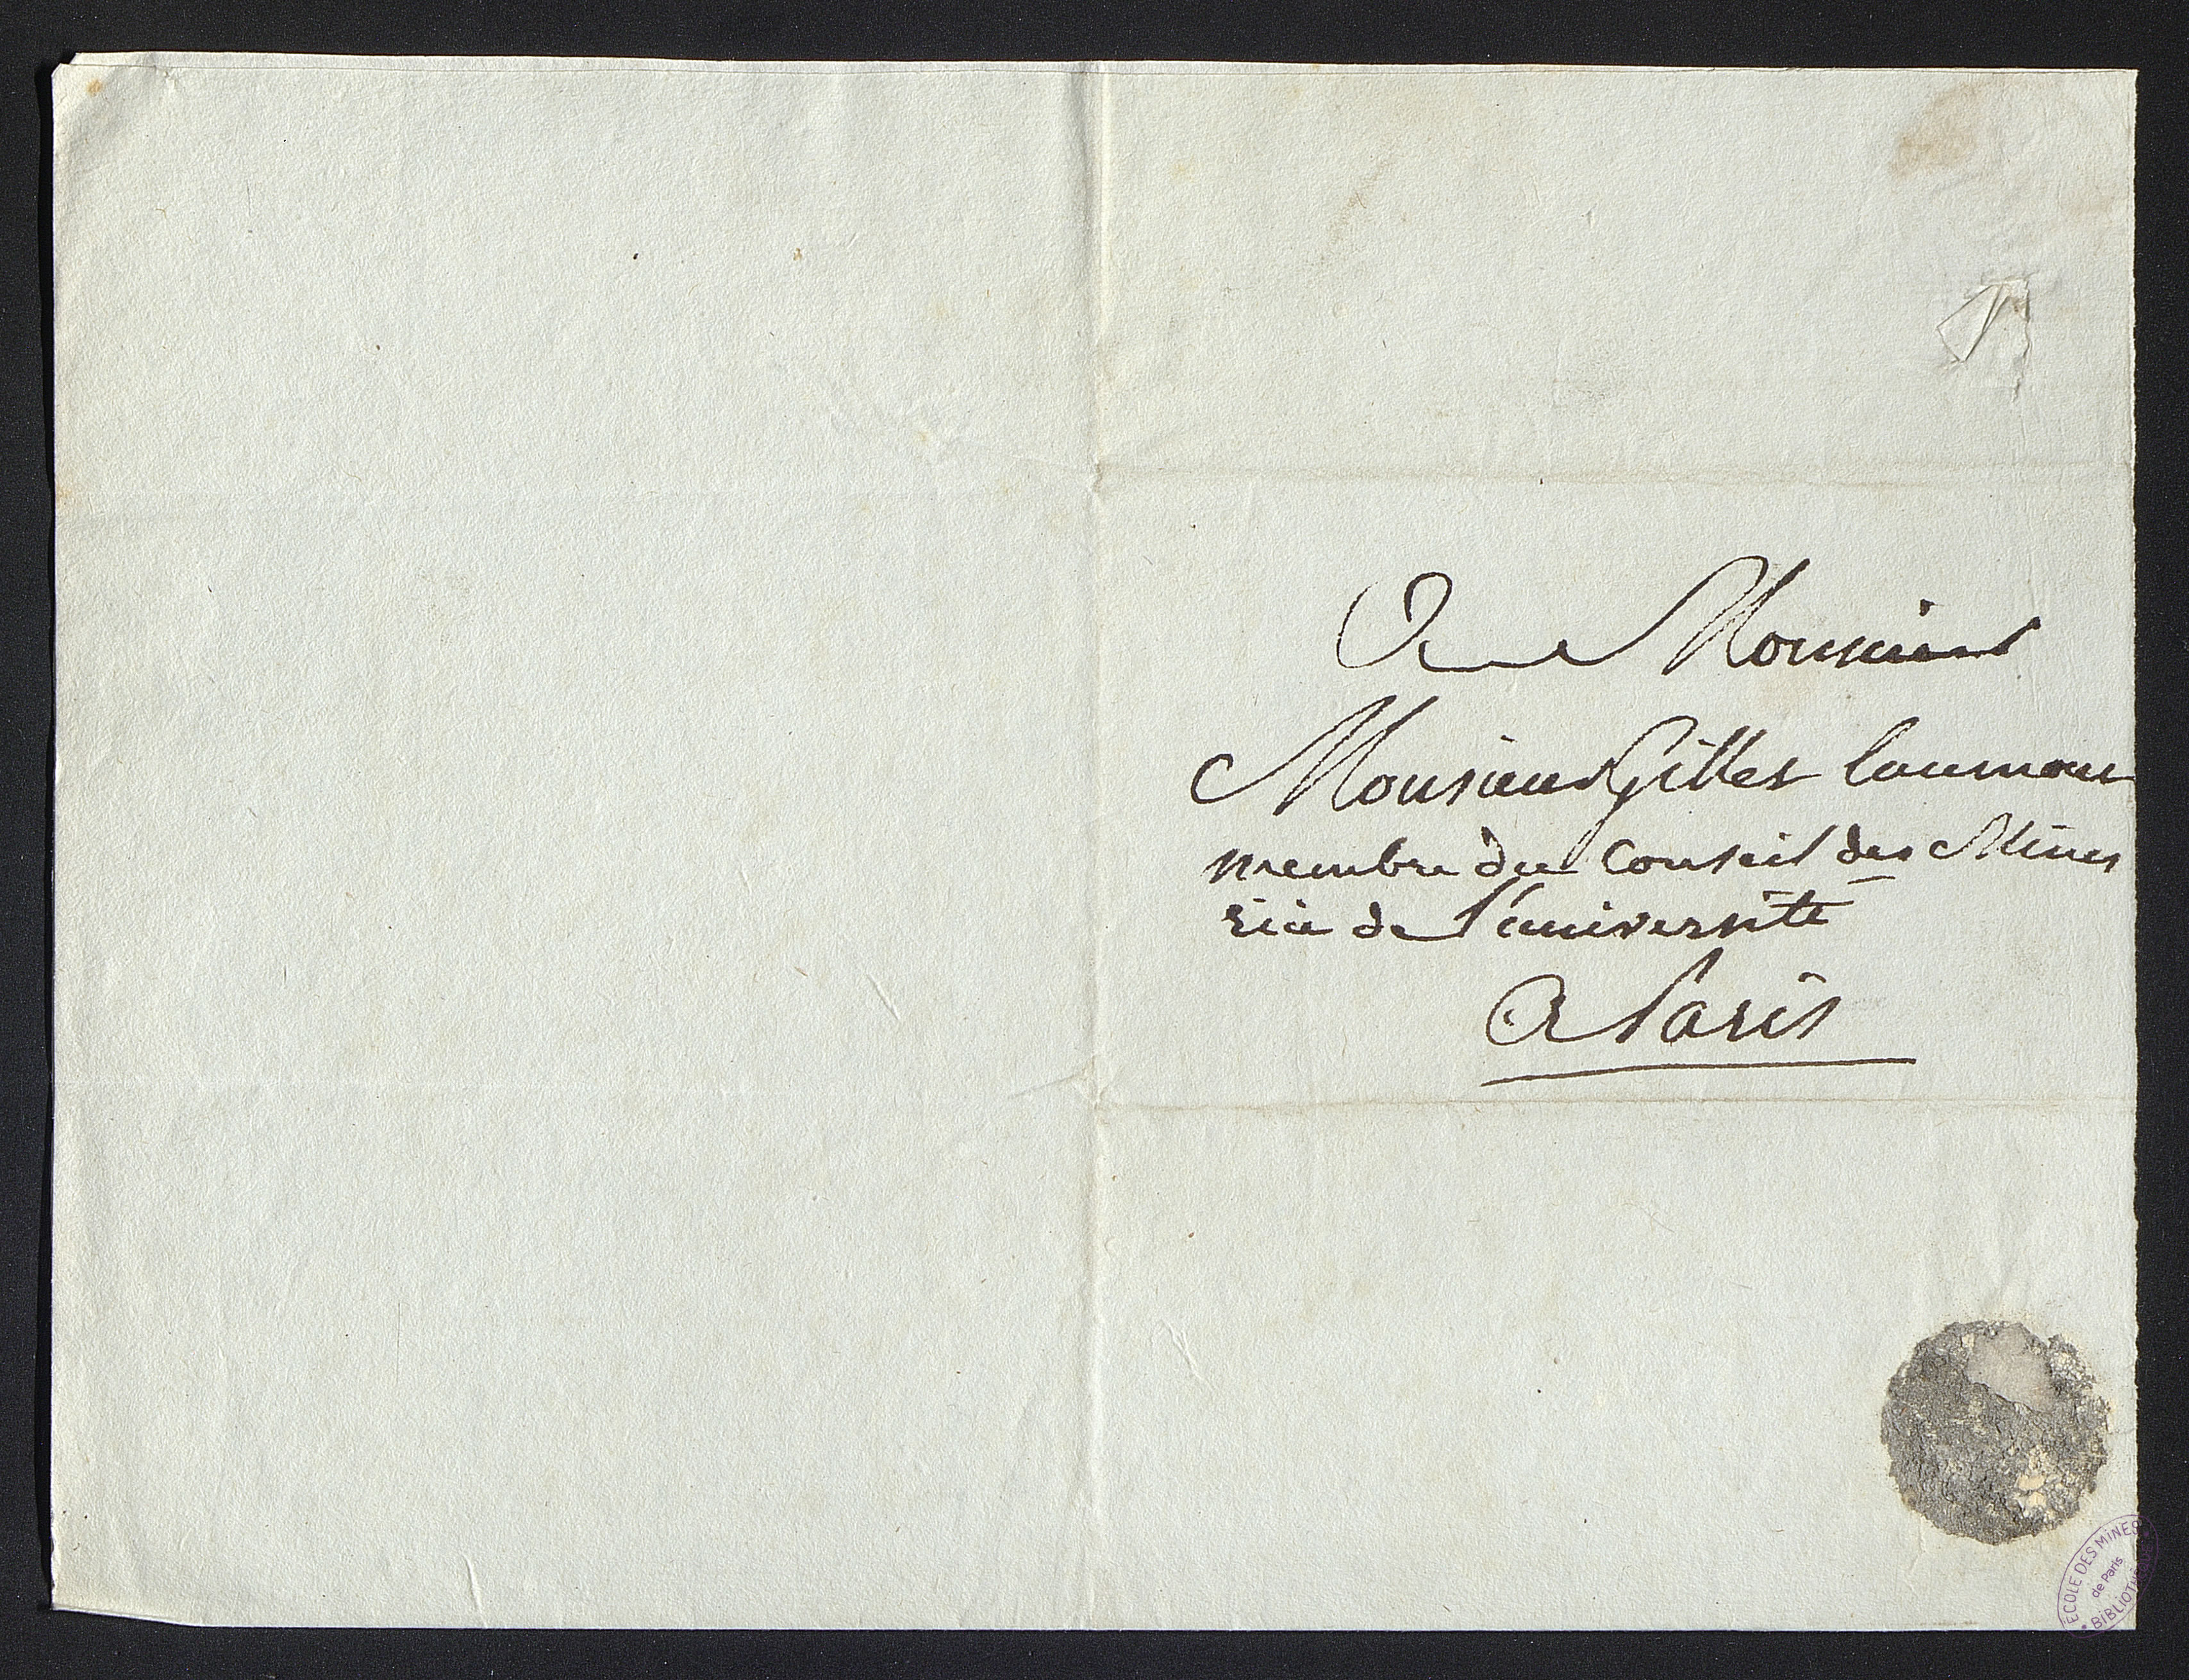 A Monsieur
Monsieur Gilles laumon
membre du Conseil des Mines
rue de l'université
A Paris
ÉCOLE DES MINES
de Paris
BIBLIOTHÈQUE